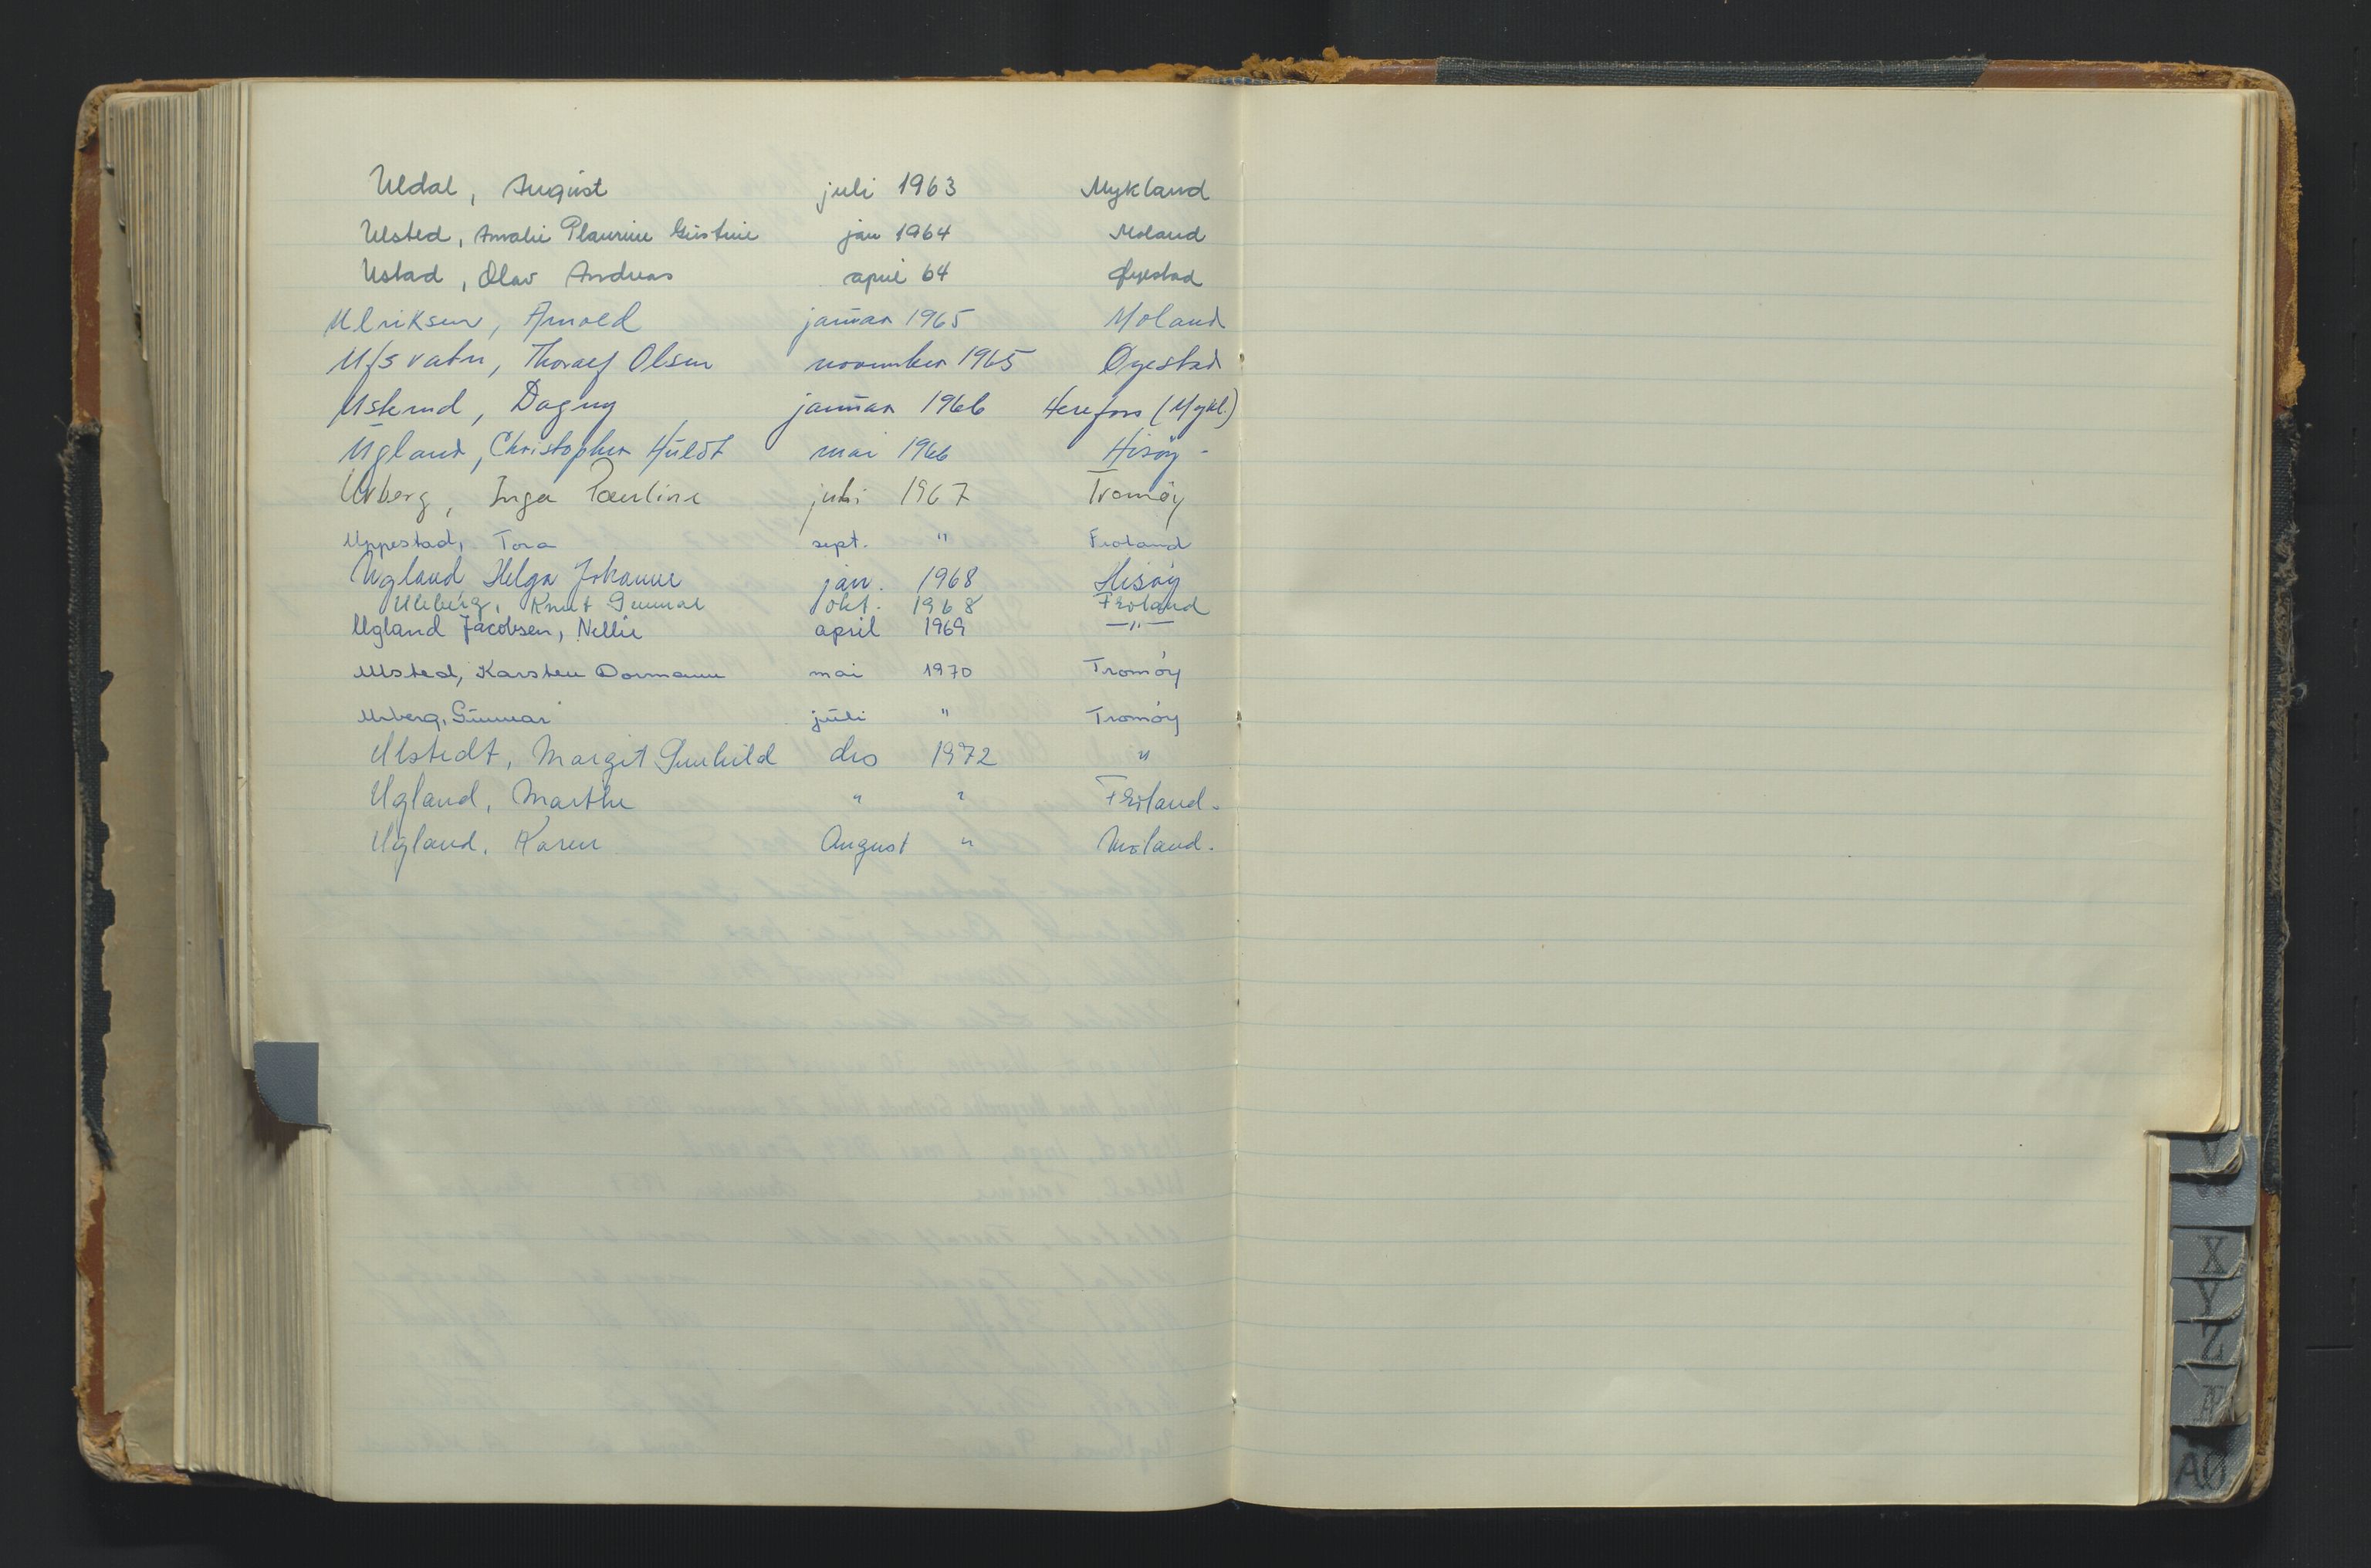 Uldal, August juli 1963 Mykland
Ulsted, Amalie Gustine jan 1964 Moland
Ustad, Olav Andreas april 64 Øyestad
Ulriksen, Arnold januar 1965 Moland
Ufsvatn, Thoralf Olsen november 1965 Øyestad
Usterud, Dagny januar 1966 Herefoss (Mykl.)
Ugland, Christopher Huldt mai 1966 Hisøy -
Urberg, Inga Pauline juli 1967 Tromøy
Uppestad, Tora sept. " Froland
Ugland Helga Johanne jan. 1968 Hisøy
Uleberg, Knut Gunnar okt. 1968 Froland
Ugland Jacobsen, Nellie april 1969 —"—
Ulsted, Karsten Dormann mai 1970 Tromøy
Urberg, Gunnar juli " Tromøy
Ulstedt, Margit Gunhild des 1972 "
Ugland, Marthe " " Froland.
Ugland. Karen August " Moland.
V
X
Y
Z
Æ
AØ